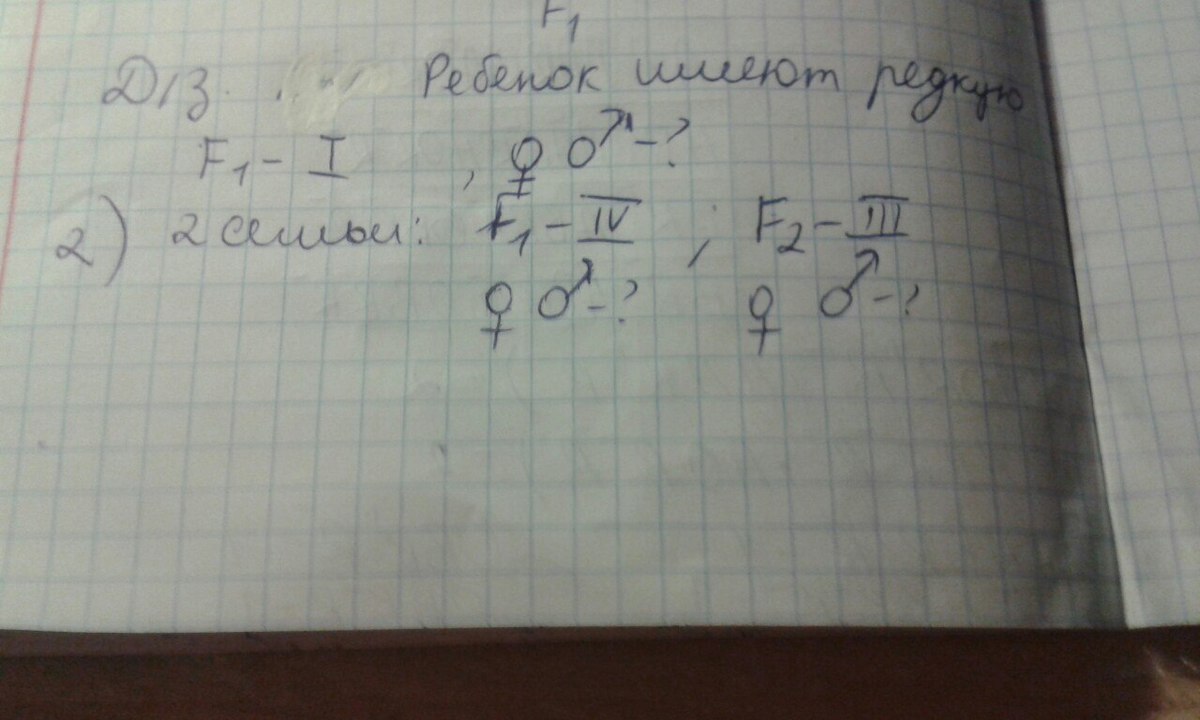 F₁
Д/з. Ребенок имеют редкую
F₁ - I , ♀ ♂ - ?
2) 2 семьи: F₁ - IV ; F₂ - III
♀ ♂ - ? ♀ ♂ - ?